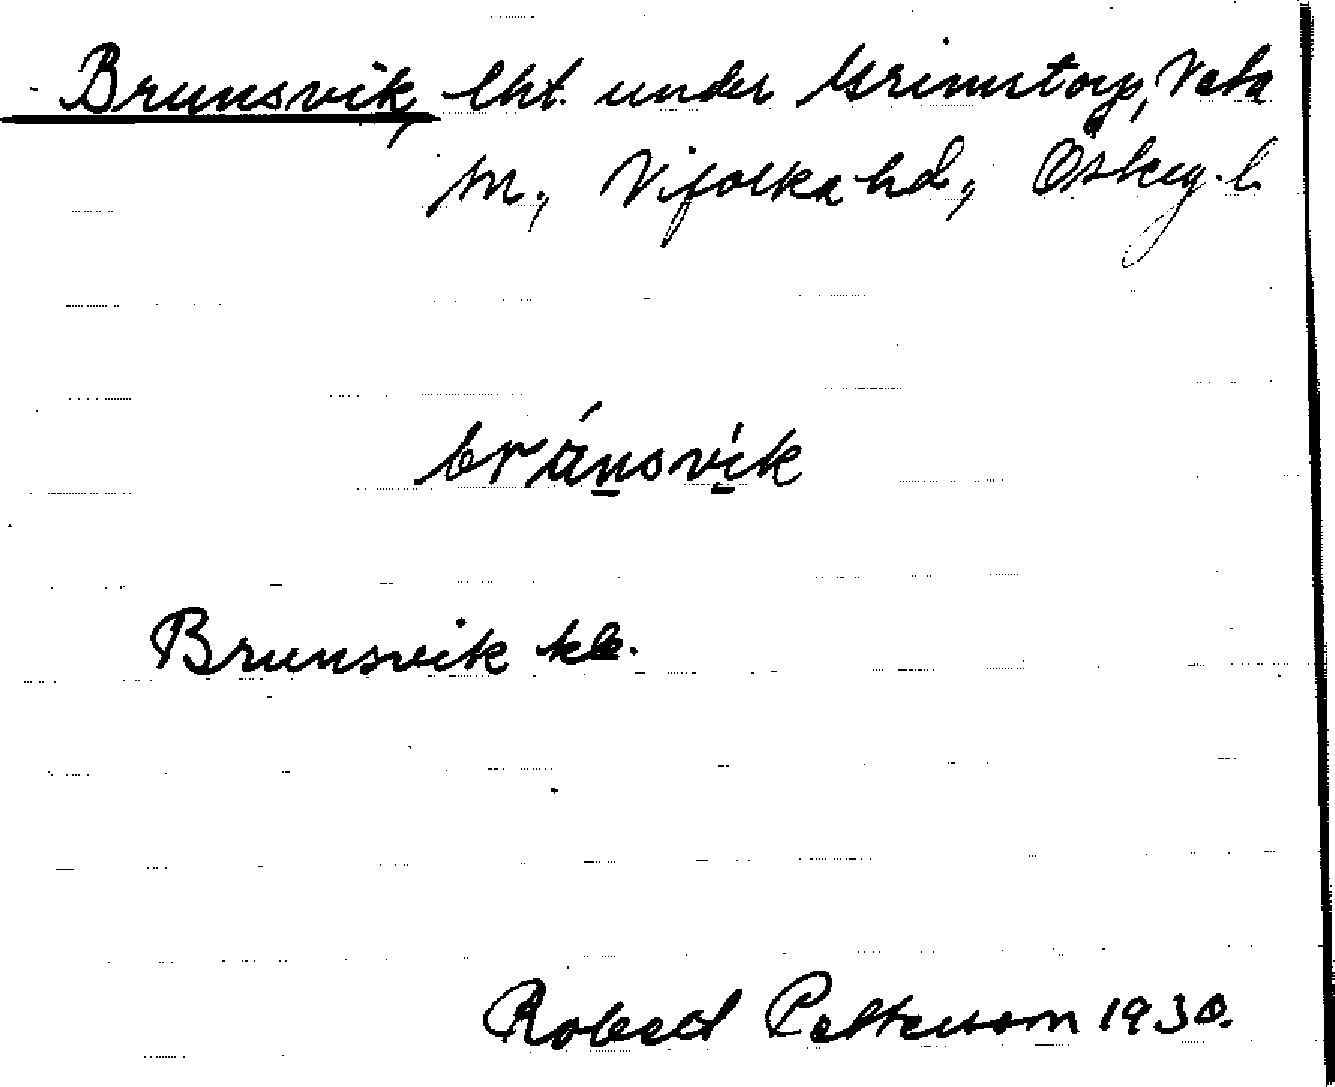 Brunsvik, lht. under Grimstorp, Veta
sn., Vifolka hd., Österg. l.
bránsvík
Brunsvik kb.
Robert Petterson 1930.